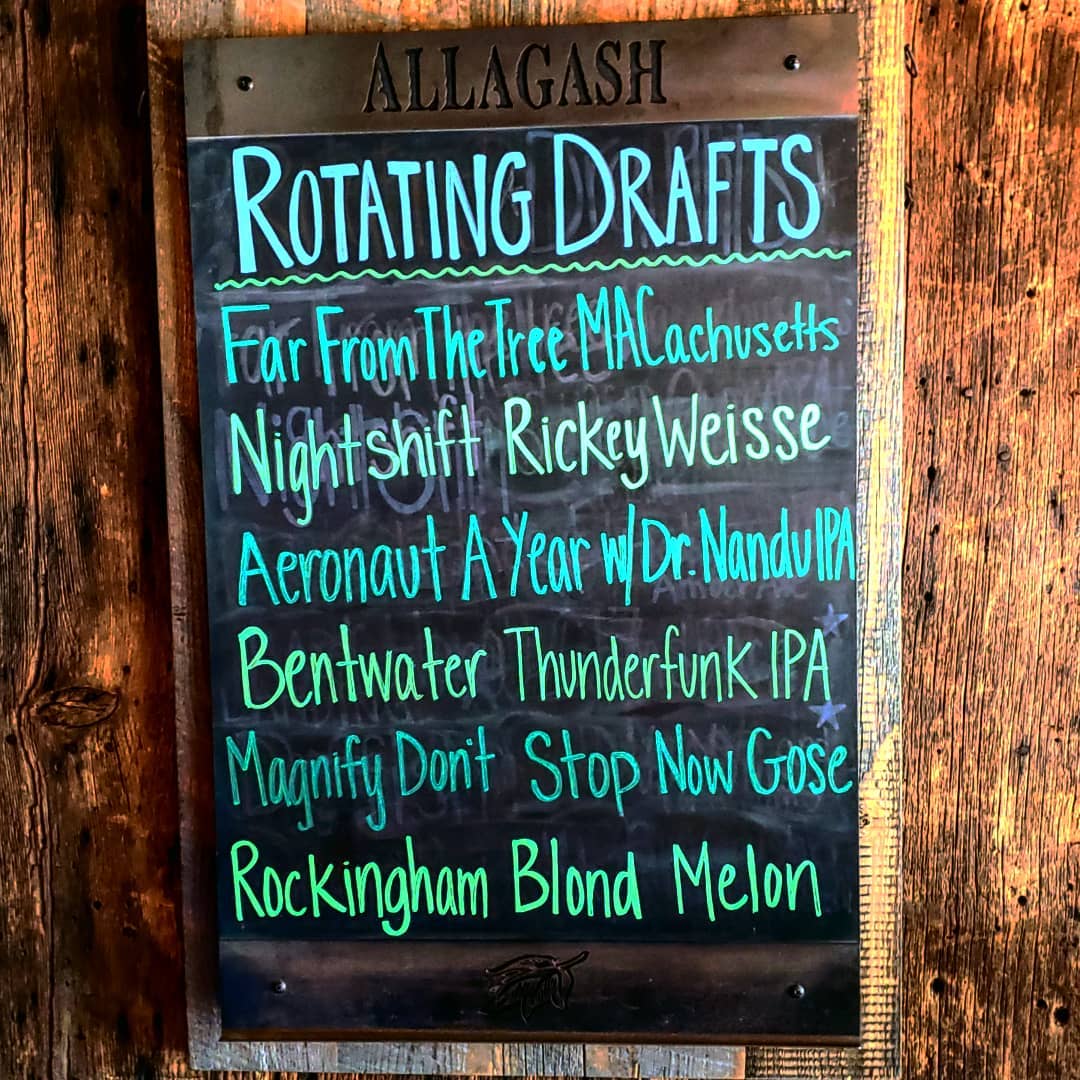 ALLAGASH
ROTATING DRAFTS
Far From The Tree MACachusetts
Nightshift Rickey Weisse
Aeronaut A Year w/ Dr. Nandu IPA
Bentwater Thunderfunk IPA
Magnify Don't Stop Now Gose
Rockingham Blond Melon